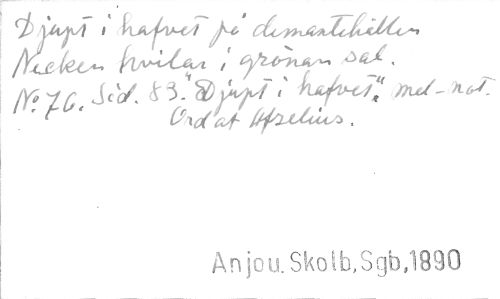 Djupt i hafvet på demantehällen
Necken hvilar i grönan sal.
No 76. Sid. 83. "Djupt i hafvet", mel-not.
Ord af Afzelius.
Anjou. Skolb, Sgb, 1890